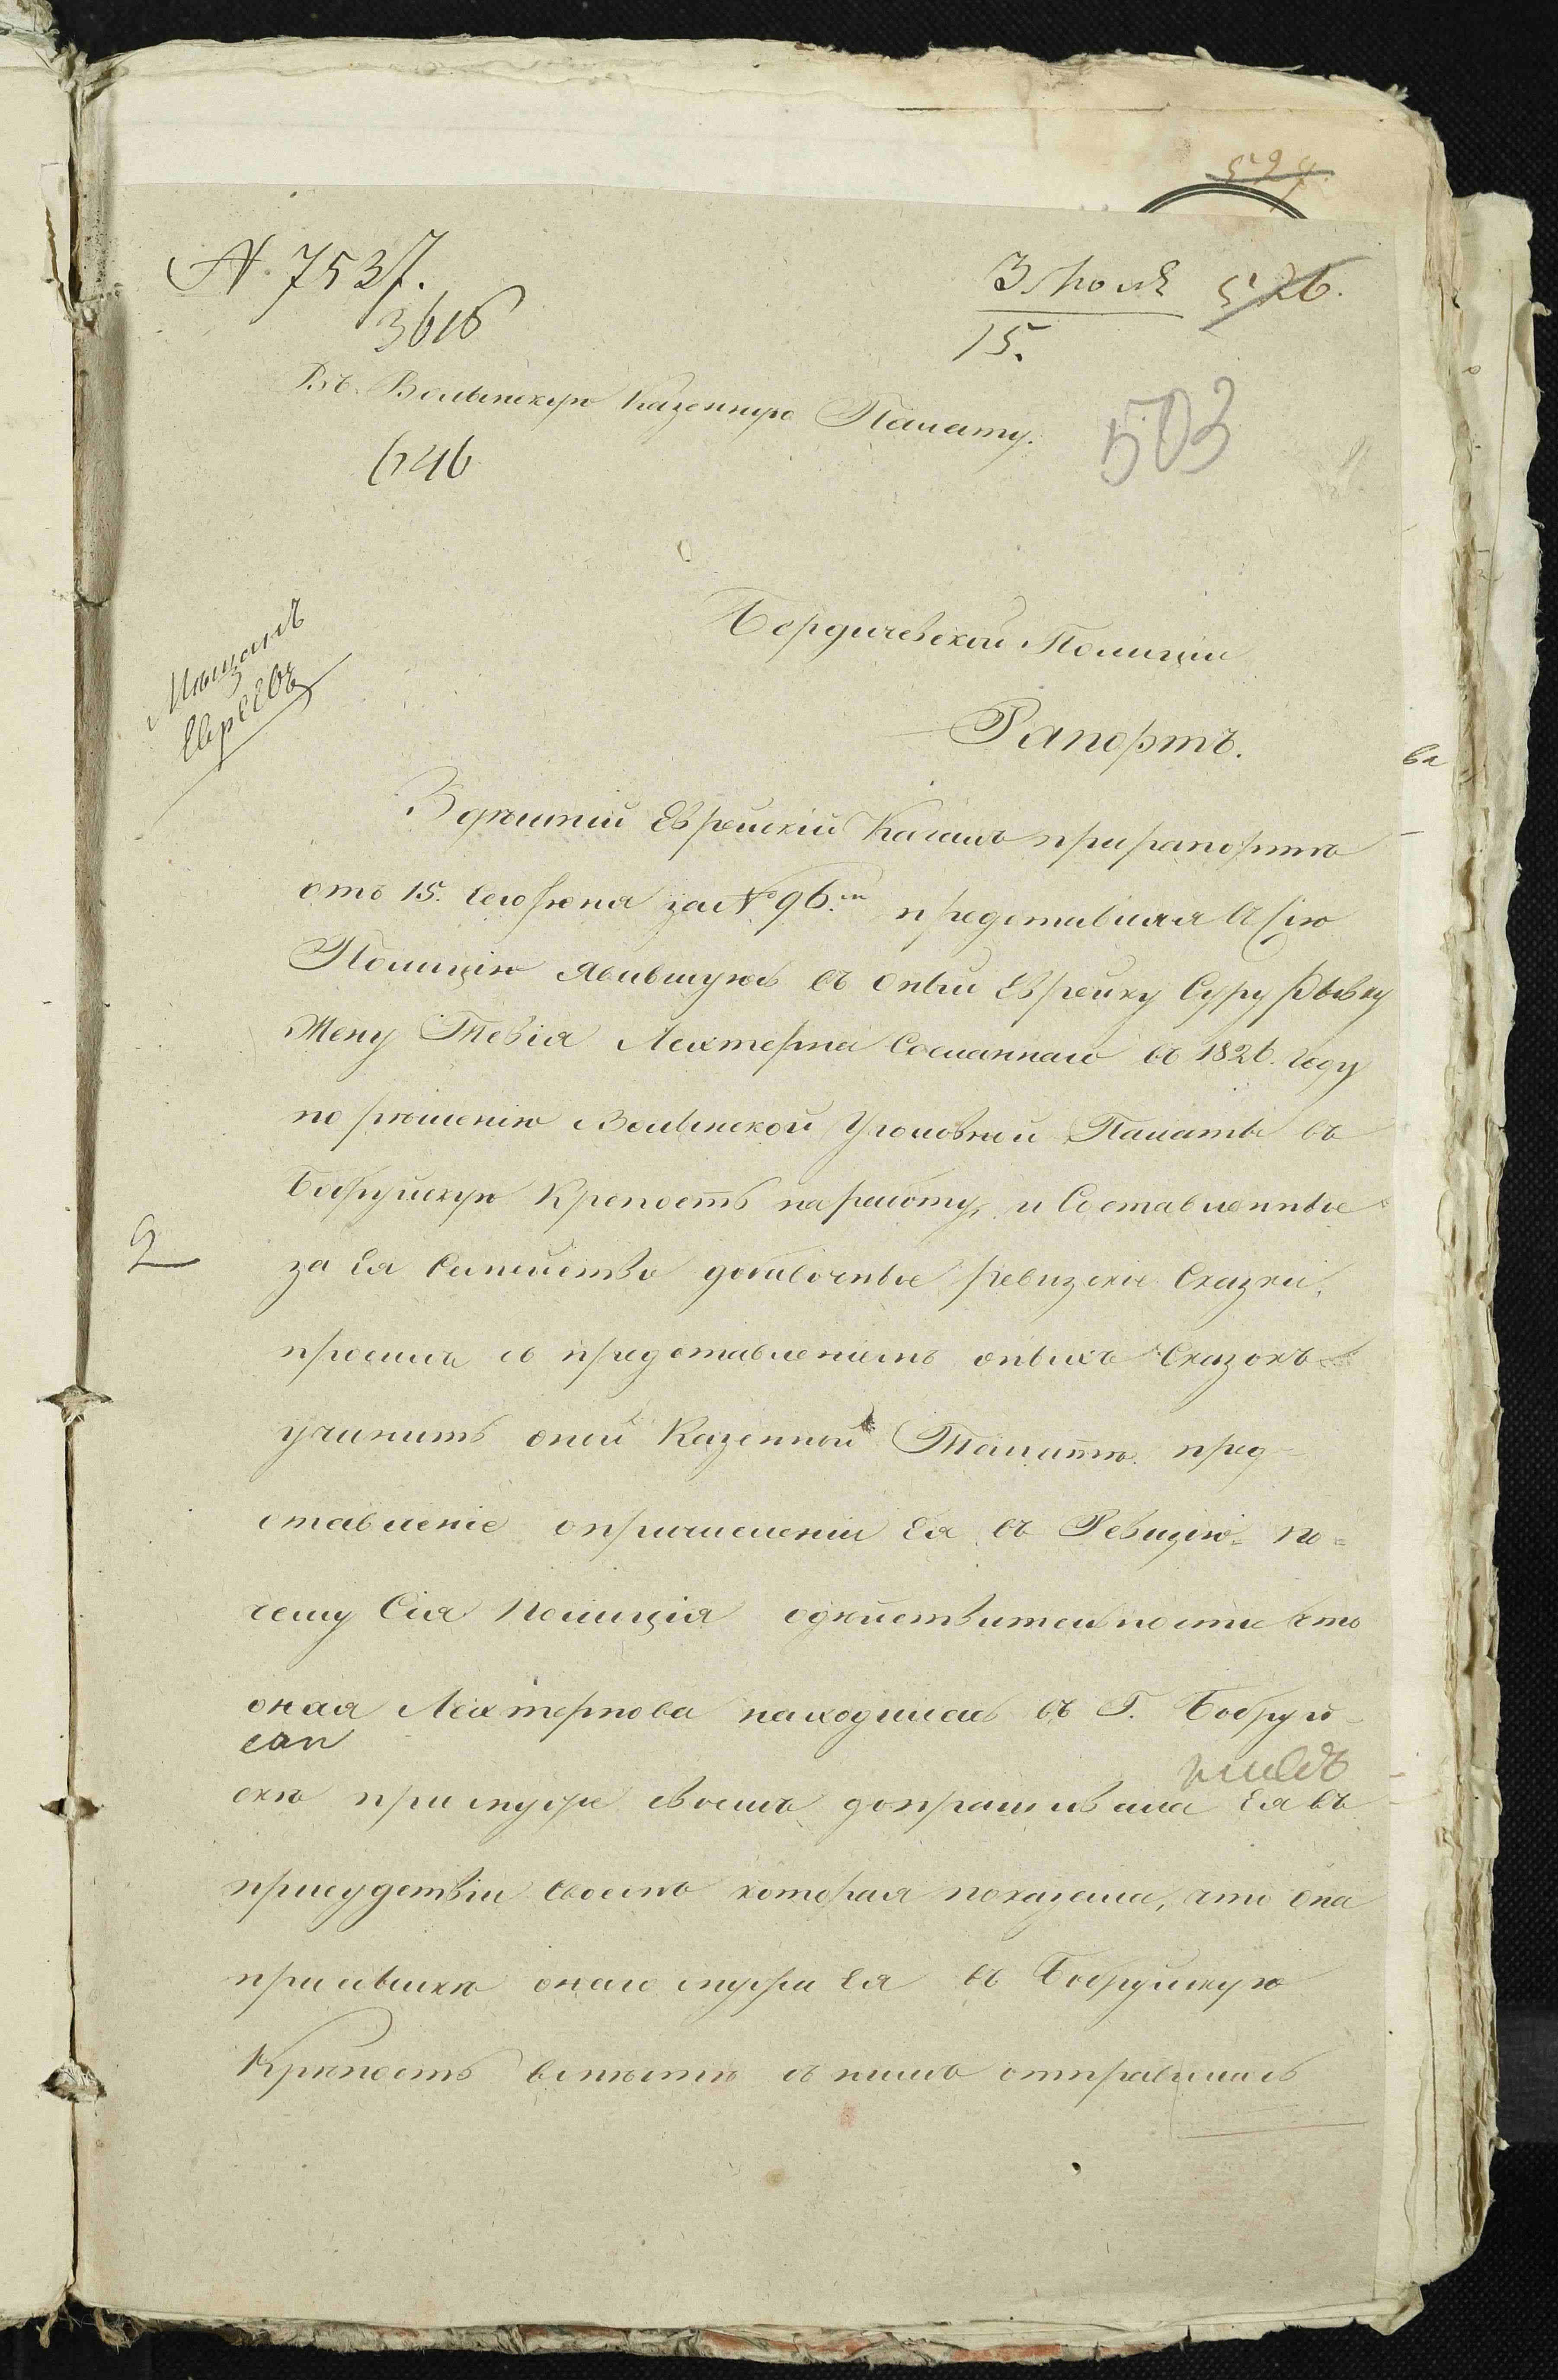 524
N. 7537.
3 Іюля 526.
3616
15.
Въ Волынскую Казенную Палату.
503
646
Бердичевской Полиціи
Мѣщанъ
Евреевъ
Рапортъ.
ва
Здѣшній Еврейскій Кагалъ при рапортѣ
отъ 15. сего Іюня за № 96.мъ представляя въ сію
Полицію явившуюсь въ оный Еврейку Суру Рывку
Жену Тевія Лехтерна Сосланнаго въ 1826. году
по рѣшенію Волынской Уголовной Палаты въ
Бобруйскую Крепость на работу, и Составленные
за Ея Семейство добавочные ревизскіе Сказки,
просилъ съ представленіемъ оныхъ Сказокъ
учинить оной Казенной Палатѣ пред-
ставленіе о причисленіи Ея въ Ревизію. по=
чему Сія Полиція о дѣйствительности что
оная Лехтернова находилась въ Г. Бобруй-
скѣ при мужѣ своемъ допрашивала Ея въ
присудствіи своемъ которая показала, что она
при высылкѣ онаго мужа Ея въ Бобруйскую
Крѣпость вместѣ съ нимъ отправилась